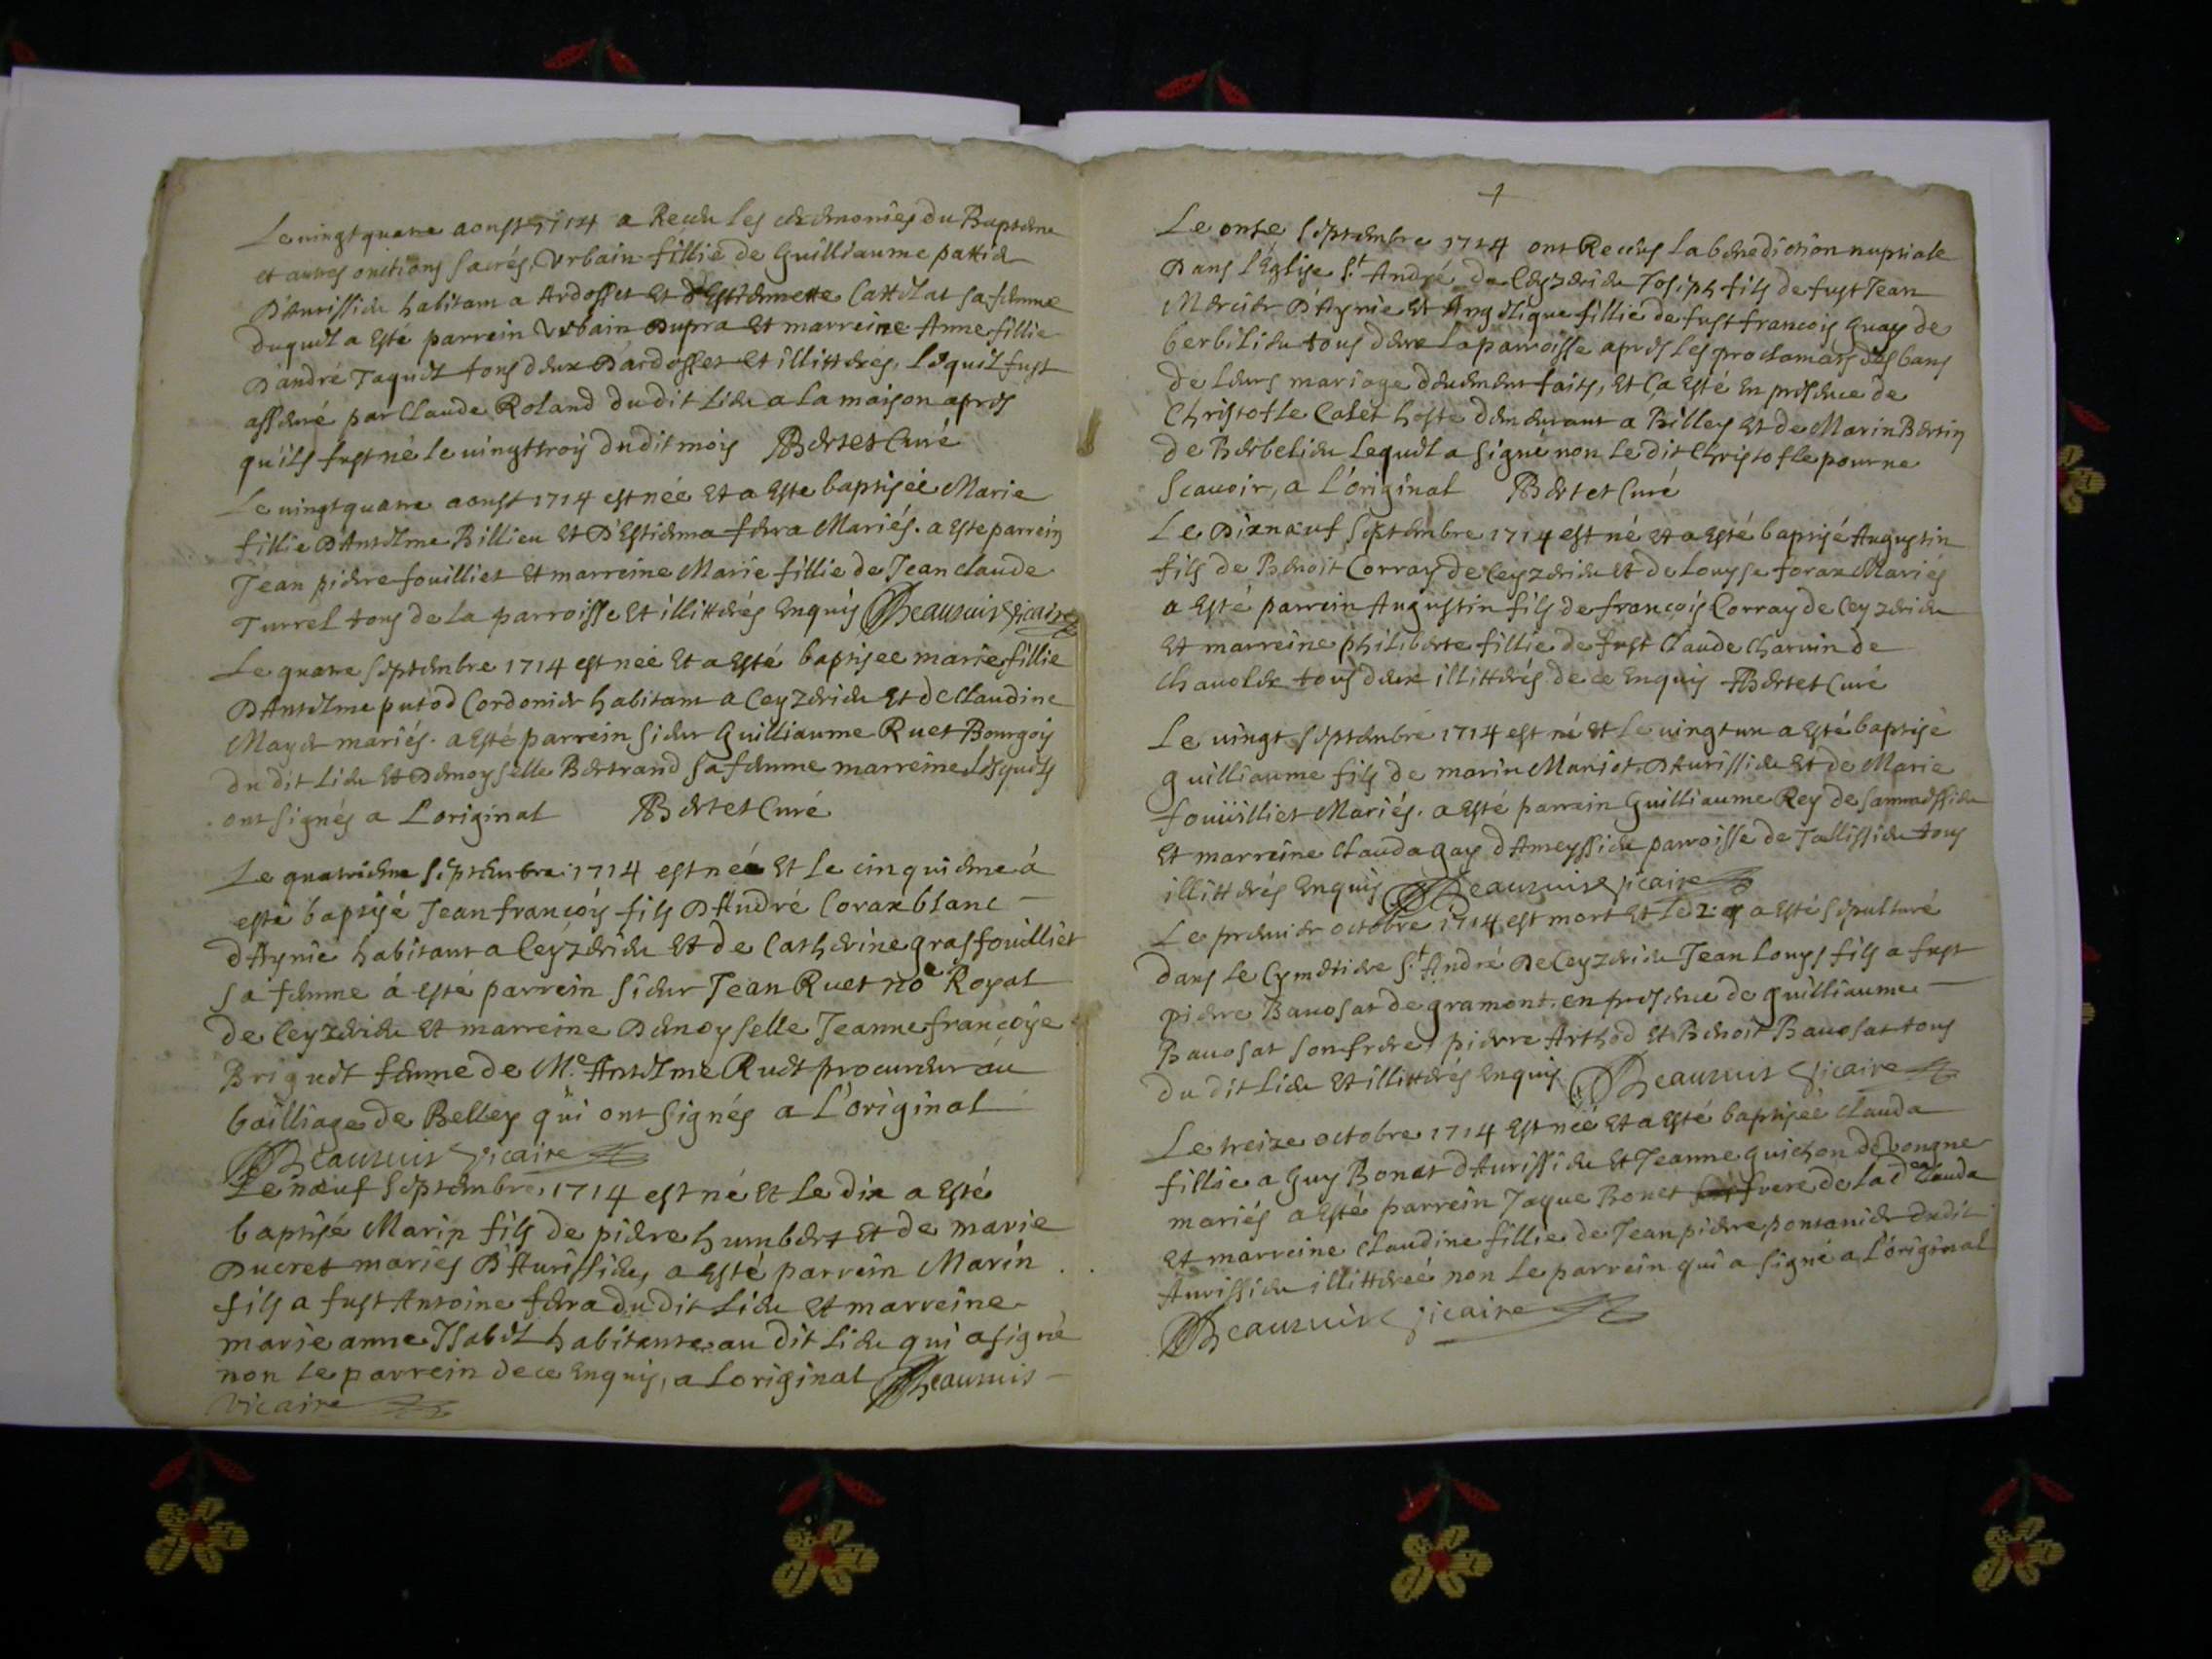 Le vingt quatre aoust 1714 a Receu les ceremonies du Baptême
et autres onctions sacrés, Urbain fillie de Guilliaume pattie
D'aurissieu habitant a Ardosset Et d'Estiennette Cattelat sa femme
duquel a Esté parrein Urbain Dupra Et marreine Anne fillie
D'andré Jaquet tous deux D'ardosset Et illitterés, lequel fust
par Claude Roland du dit Lieu a la maison apres
quils fust né le vingt trois du dit mois Bertet Curé
Le vingt quatre aoust 1714 est née Et a Este baptisée Marie
fillie D'Antelme Billieu Et D'Estiema fera Mariés. a Este parrein
Jean pierre fouilliet Et marreine Marie fillie de Jean claude
Turrel tous de la parroisse Et illitterés Enquis Beauruis vicaire
Le quatre septembre 1714 est née Et a Esté baptisee marie fillie
D'Antelme putod Cordonier habitant a Ceyzerieu Et de Claudine
Mayer mariés. a Esté parrein sieur Guilliaume Ruet Bourgois
du dit Lieu Et Demoyselle Bertrand sa femme marreine Lesquels
ont signés a L'original Bertet Curé
Le quatrieme septembre 1714 est né Et le cinquieme à
esté baptisé Jean françois fils D'André Corax blanc
d'Aynie habitant a Ceyzerieu Et de Catherine gras fouilliet
sa femme à esté parrein sieur Jean Ruet noe Royal
de Ceyzerieu Et marreine Demoyselle Jeanne françoise
Briguet femme de Me Antelme Ruet procureur au
bailliage de Belley qui ont signés a L'original
Beauruis vicaire
Le neuf septembre 1714 est né Et le dix a Esté
baptisé Marin fils de pierre humbert Et de marie
Ducret mariés D'Aurissieu, a Esté parrein Marin
fils a fust Antoine fera du dit Lieu Et marreine
marie anne Isabel habitante au dit Lieu qui a signé
non le parrein de ce Enquis, a Loriginal Beauruis
vicaire
+
Le onse septembre 1714 ont Receus la benediction nuptiale
Dans l'Eglise St André de Ceyzerieu Joseph fils de fust Jean
Mercier D'Aynie Et Angelique fillie de fust francois Guay de
berbilieu tous deux La parroisse apres les proclamats des bans
de leurs mariage deuement faits, Et Ca Esté En presence de
Christofle Calet hoste demeurant a Billey Et de Marin Bertin
de Berbelieu Lequel a signé non le dit Christofle pour ne
scavoir, a L'original Bertet Curé
Le Dixneuf septembre 1714 est né Et a Esté baptisé Augustin
fils de Benoit Corray de Ceyzerieu Et de Louyse forax Mariés
a Esté parrein Augustin fils de françois Corray de Ceyzerieu
Et marreine philiberte fillie de fust Claude Charvin de
chavolex tous deux illitterés de ce Enquis Bertet Curé
Le vingt septembre 1714 est né Et Le vingt un a Esté baptisé
guilliaume fils de marin Mariet D'Aurissieu Et de Marie
fouilliet Mariés. a Esté parrein Guilliaume Rey de
Et marreine Clauda gay d'Ameyssieu parroisse de Tallissieu tous
illitterés Enquis Beauruis vicaire
Le premier octobre 1714 est mort Et le 2: a Esté sepulturé
dans le Cymetiere St André De Ceyzerieu Jean Louys fils a fust
pierre Bavosat de gramont. en presence de guilliaume
Bavosat son frere, pierre Arthod Et Benoit Bavosat tous
du dit Lieu Et illitterés Enquis. Beauruis vicaire
Le treize octobre 1714 Est née Et a Esté baptiseé Clauda
fillie a Guy Bonet d'Aurissieu Et Jeanne guichon de vongne
mariés a Esté parrein Jaque Bonet frere de la d Clauda
Et marreine Claudine fillie de Jean pierre pontanier dudit
Aurissieu illitterée non le parrein qui a signé a L'original
Beauruis vicaire